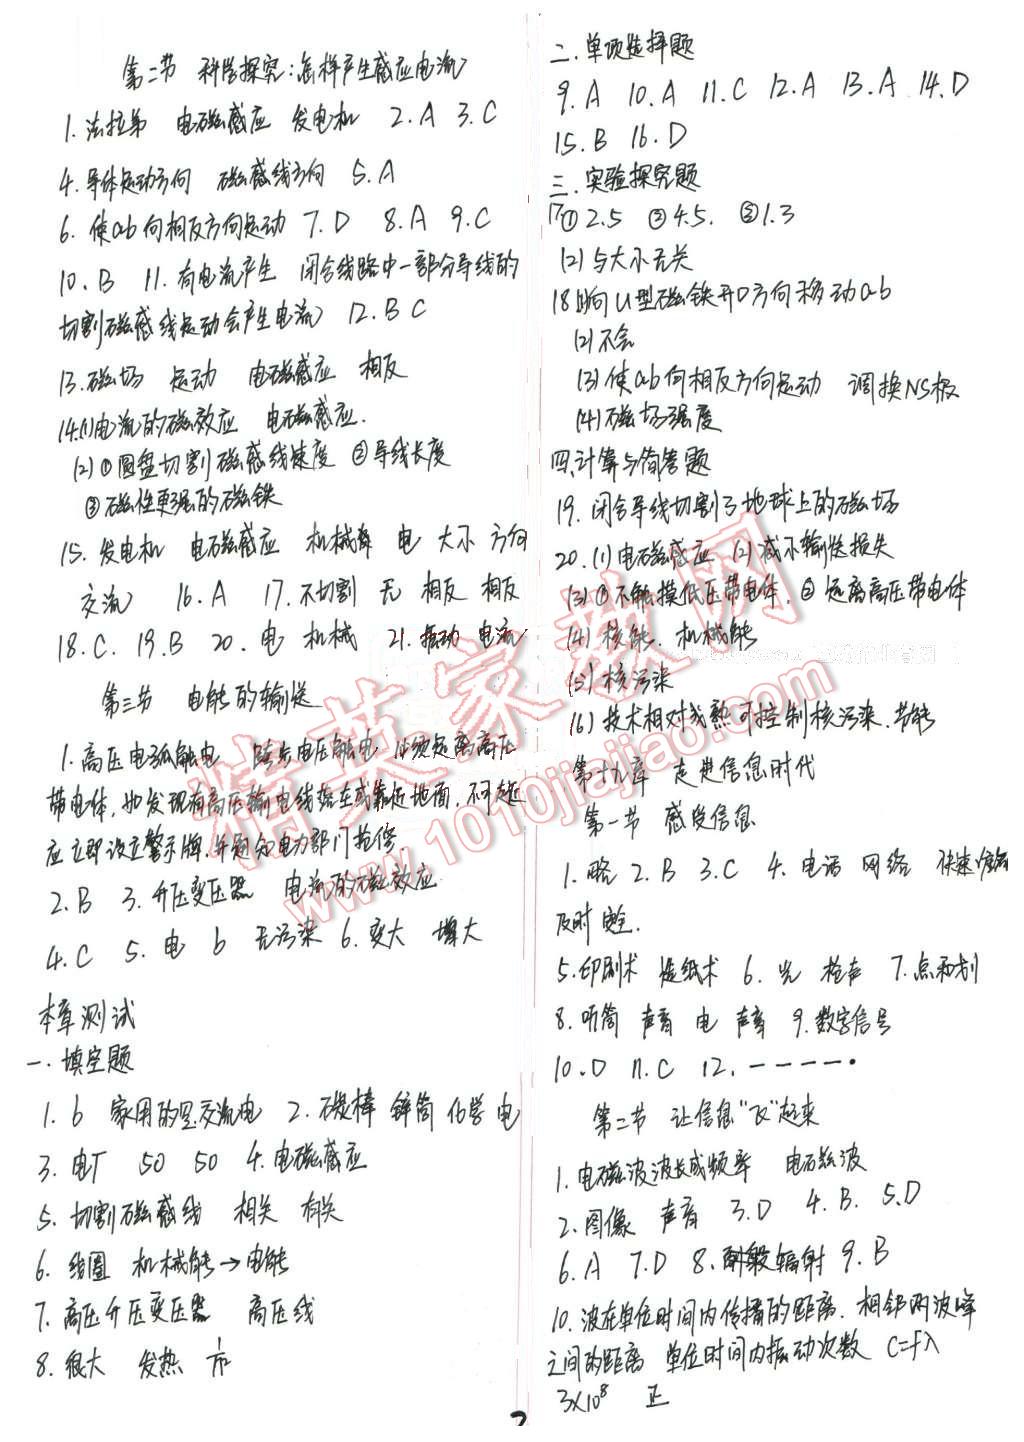 第二节 科学探究:怎样产生感应电流
1.法拉第 电磁感应 发电机 2.A 3.C
4.导体运动方向 磁感线方向 5.A
6.使ab向相反方向运动 7.D 8.A 9.C
10.B 11.有电流产生 闭合线路中一部分导线的
切割磁感线运动会产生电流 12.BC
13.磁场 运动 电磁感应 相反
14.(1)电流的磁效应 电磁感应.
(2)①圆盘切割磁感线速度 ②导线长度
③磁性更强的磁铁
15.发电机 电磁感应 机械 电 大小 方向
交流 16.A 17.不切割 无 相反 相反
18.C. 19.B 20.电 机械 21.振动 电流
第三节 电能的输送
1.高压电弧触电 跨步电压触电 必须远离高压
带电体,如发现有高压输电线落在或靠近地面,不可
应立即设立警示牌,并通知电力部门抢修.
2.B 3.升压变压器 电流的磁效应
4.C 5.电 b 无污染 6.变大 增大
本章测试
一.填空题
1.6 家用的是交流电 2.碳棒 锌筒 化学 电
3.电厂 50 50 4.电磁感应
5.切割磁感线 相关 有关
6.线圈 机械能→电能
7.高压升压变压器 高压线
8.很大 发热
二.单项选择题
9.A 10.A 11.C 12.A 13.A 14.D
15.B 16.D
三.实验探究题
17①2.5 ③4.5. ⑤1.3
(2)与大小无关
18.(1)向U型磁铁开口方向移动ab
(2)不会
(3)使ab向相反方向运动 调换NS极
(4)磁场强度
四.计算与简答题
19.闭合导线切割了地球上的磁场
20.(1)电磁感应 (2)减小输送损失
(3)①不触摸低压带电体,②远离高压带电体
(4)核能.机械能
(5)核污染
(6)技术相对成熟 可控制核污染.节能
第十九章 走进信息时代
第一节 感受信息
1.略 2.B 3.C 4.电话 网络 快速
及时
5.印刷术 造纸术 6.光 枪声 7.点和划
8.听筒 声音 电 声音 9.数字信号
10.D 11.C 12.－－－－·
第二节 让信息"飞"起来
1.电磁波波长或频率 电磁波
2.图像 声音 3.D 4.B. 5.D
6.A 7.D 8. 辐射 9.B
10.波在单位时间内传播的距离. 相邻两波峰
之间的距离 单位时间内振动次数 C=fλ
3×10⁸ 正
精英家教网
www.1010jiajiao.com
2